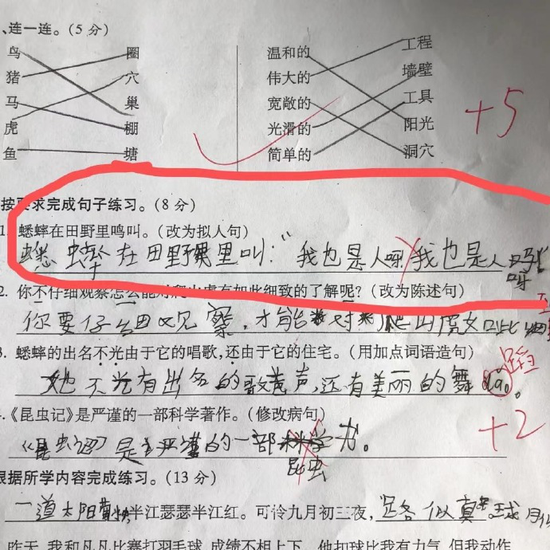 、连一连。(5 分)
鸟 圈 温和的 工程
猪 穴 伟大的 墙壁
马 巢 宽敞的 工具
虎 棚 光滑的 阳光
鱼 塘 简单的 洞穴
+5
按要求完成句子练习。(8 分)
1. 蟋蟀在田野里鸣叫。(改为拟人句)
蟋蟀在田野里叫:“我也是人 我也是人
2. 你不仔细观察怎么能对爬山虎有如此细致的了解呢?(改为陈述句)
你要仔细观察,才能对爬山虎如此细
3. 蟋蟀的出名不光由于它的唱歌,还由于它的住宅。(用加点词语造句)
她不光有出名的歌声,还有美丽的舞
蹈
+2
.《昆虫记》是严谨的一部科学著作。(修改病句)
《昆虫记》是严谨的一部
昆虫
根据所学内容完成练习。(13 分)
一道 半江瑟瑟半江红。可怜九月初三夜,
昨天,我和凡凡比赛打羽毛球,成绩不相上下。他扣球比我有力气,但我动作